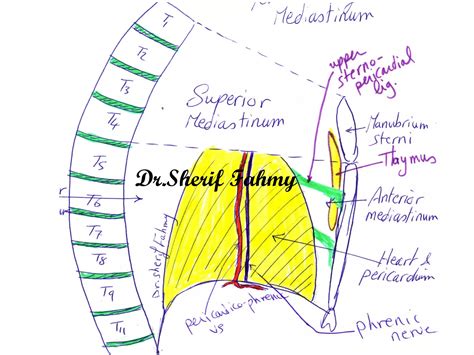 Mediastinum
T1
T2
T3
T4
T5
T6
T7
T8
T9
T11
upper
sterno-
pericardial
lig.
Superior
Mediastinum
Manubrium
sterni
Thymus
Dr.Sherif Fahmy
Anterior
mediastinum
Dr.Sherif Fahmy
Heart &
pericardium
pericardico-phrenic
vs
phrenic
nerve